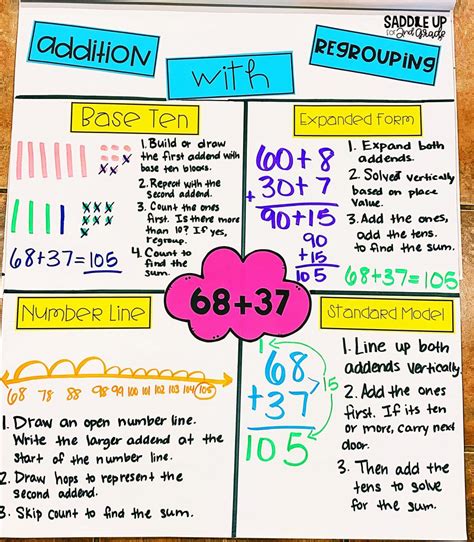 SADDLE UP
for 2nd Grade
addition
with
REGROUPING
Base Ten
1. Build or draw
the first addend with
base ten blocks.
2. Repeat with the
second addend.
3. Count the ones
first. Is there more
than 10? If yes,
regroup.
4. Count to
find the
sum.
68+37=105
Expanded Form
60+8
+ 30+7
90+15
90
+15
105
1. Expand both
addends.
2. Solved vertically
based on place
value.
3. Add the ones,
add the tens.
to find the sum.
68+37=105
68+37
Number Line
68 78 88 98 99 100 101 102 103 104 105
1. Draw an open number line.
Write the larger addend at the
start of the number line.
2. Draw hops to represent the
second addend.
3. Skip count to find the sum.
Standard Model
1
68
+37
15
105
1. Line up both
addends vertically.
2. Add the ones
first. If its ten
or more, carry next
door.
3. Then add the
tens to solve
for the sum.